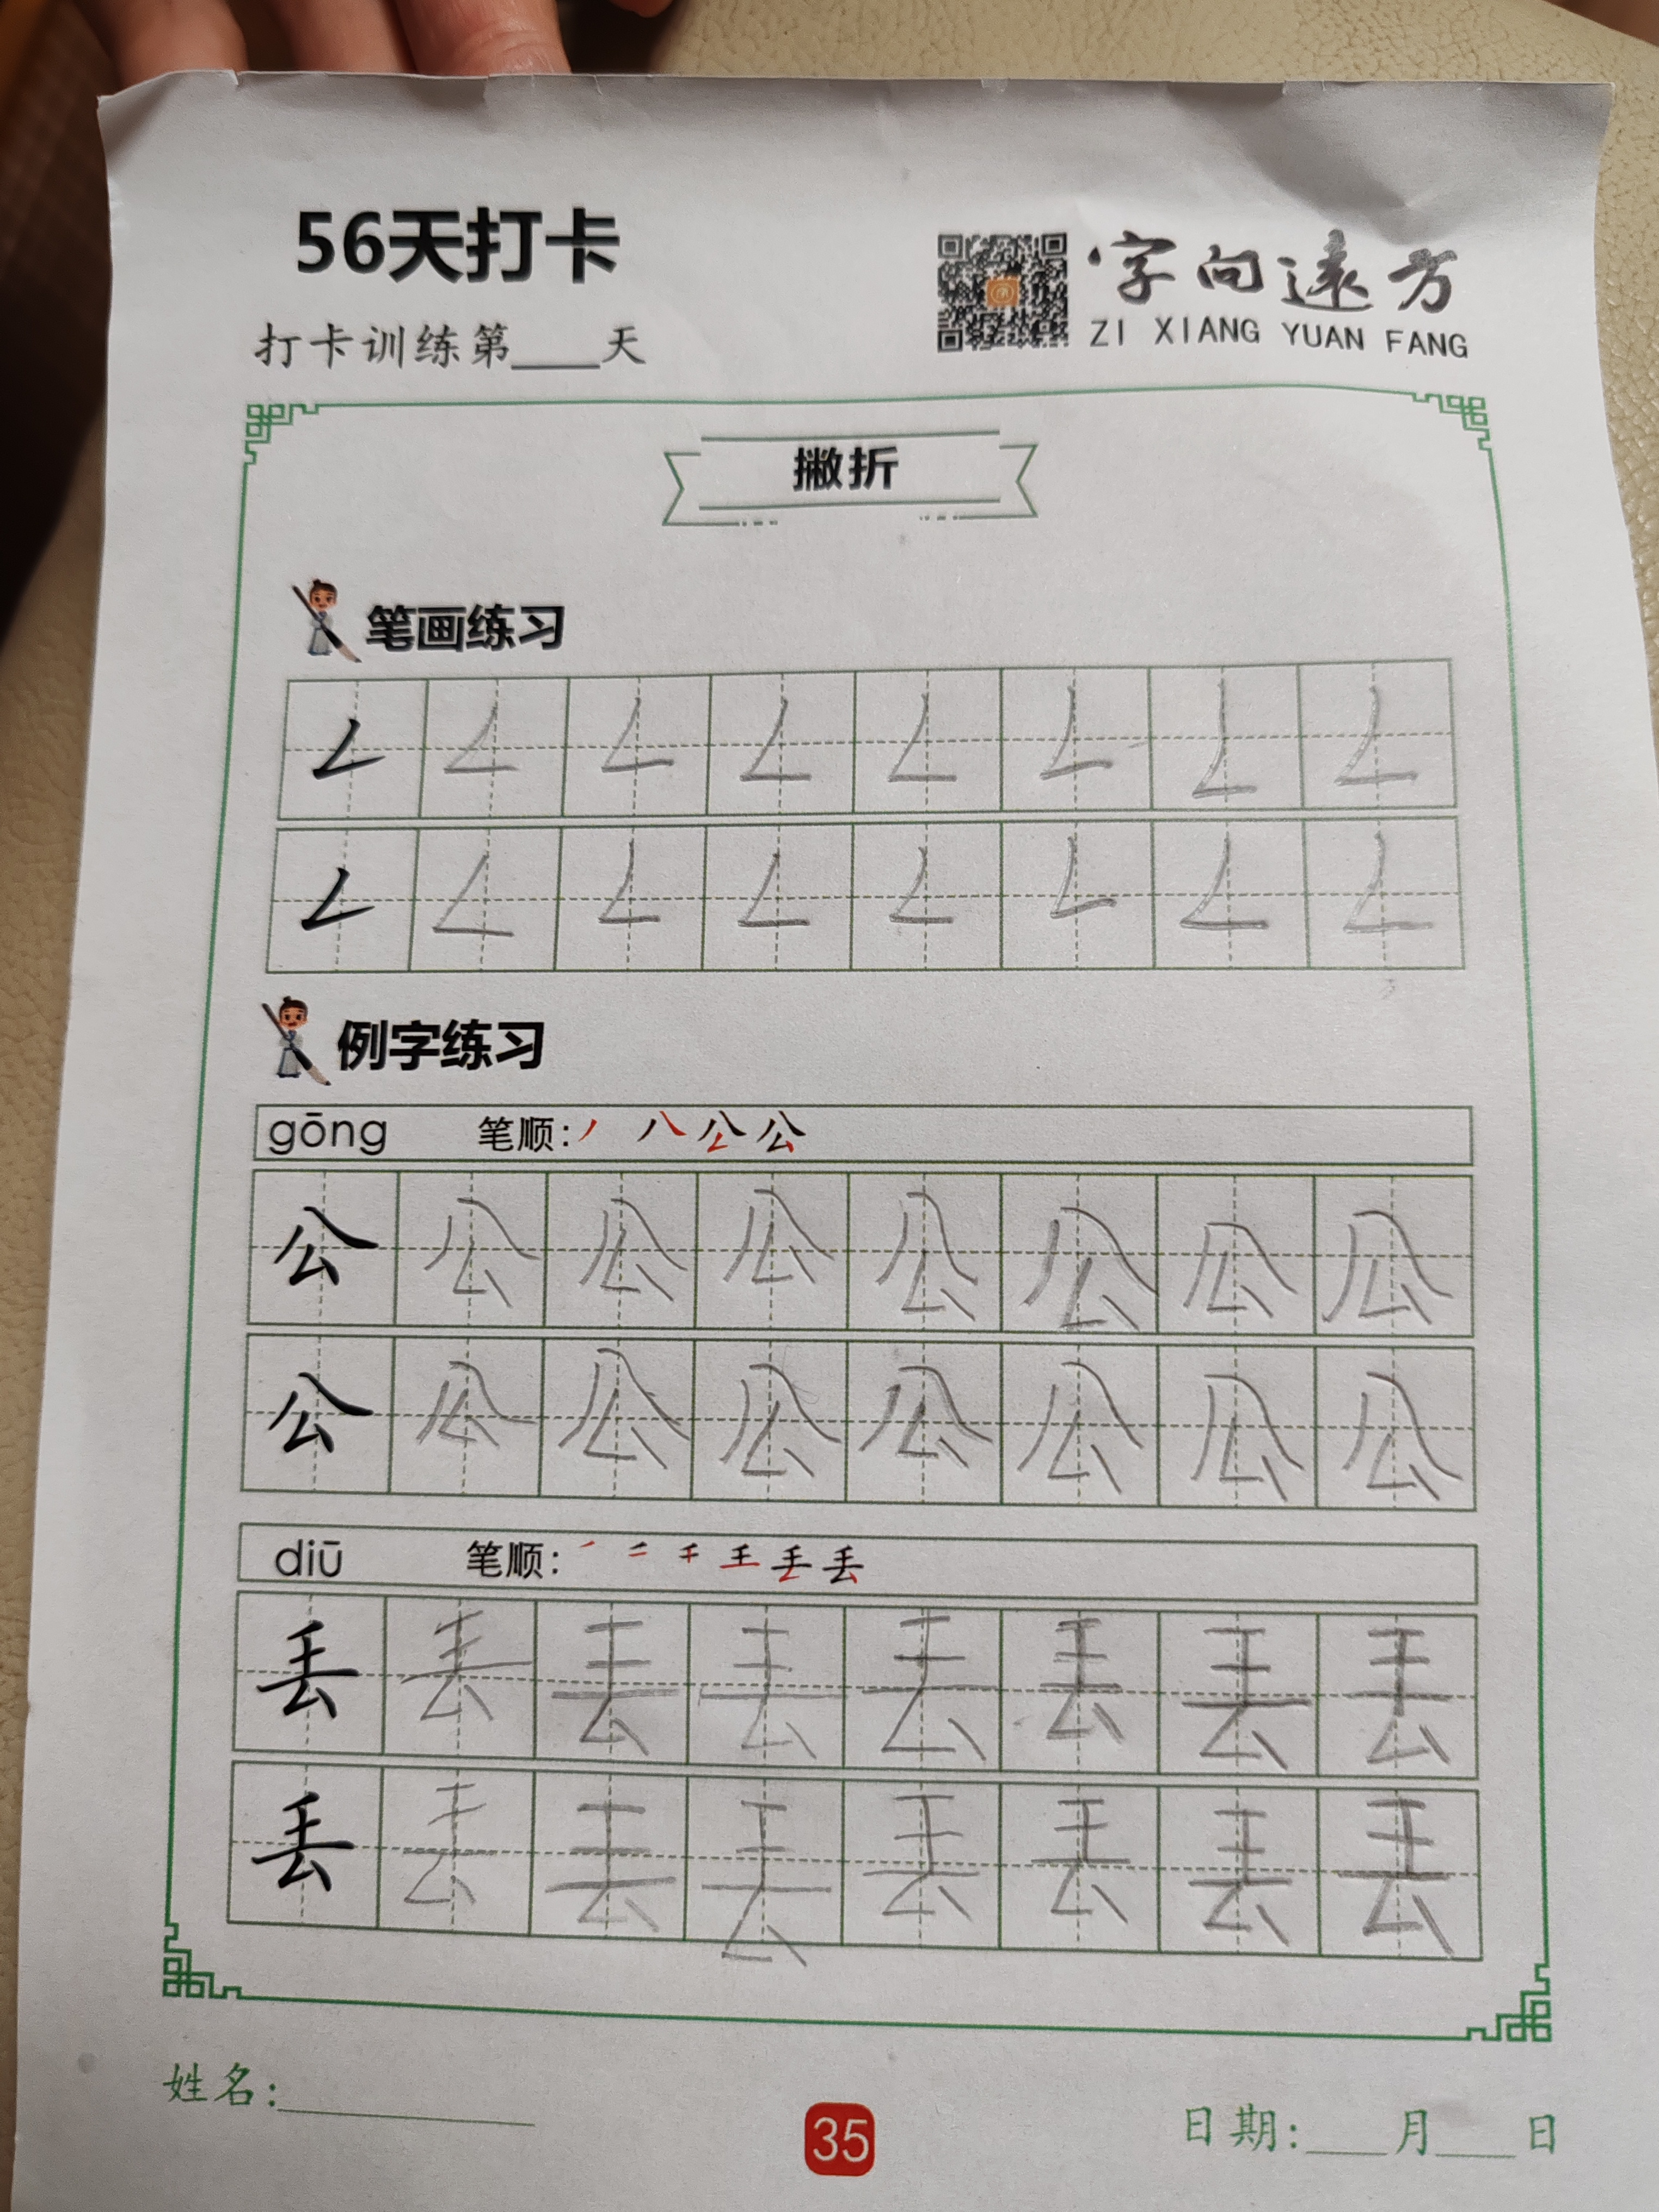 56天打卡
字向遠方
ZI XIANG YUAN FANG
打卡训练第____天
撇折
笔画练习
𠃋 𠃋 𠃋 𠃋 𠃋 𠃋 𠃋 𠃋
𠃋 𠃋 𠃋 𠃋 𠃋 𠃋 𠃋 𠃋
例字练习
gōng 笔顺:丿 八 公 公
公 公 公 公 公 公 公 公
公 公 公 公 公 公 公 公
diū 笔顺:
丢 丢 丢 丢 丢 丢 丢 丢
丢 丢 丢 丢 丢 丢 丢 丢
姓名:____________
35
日期:____月____日